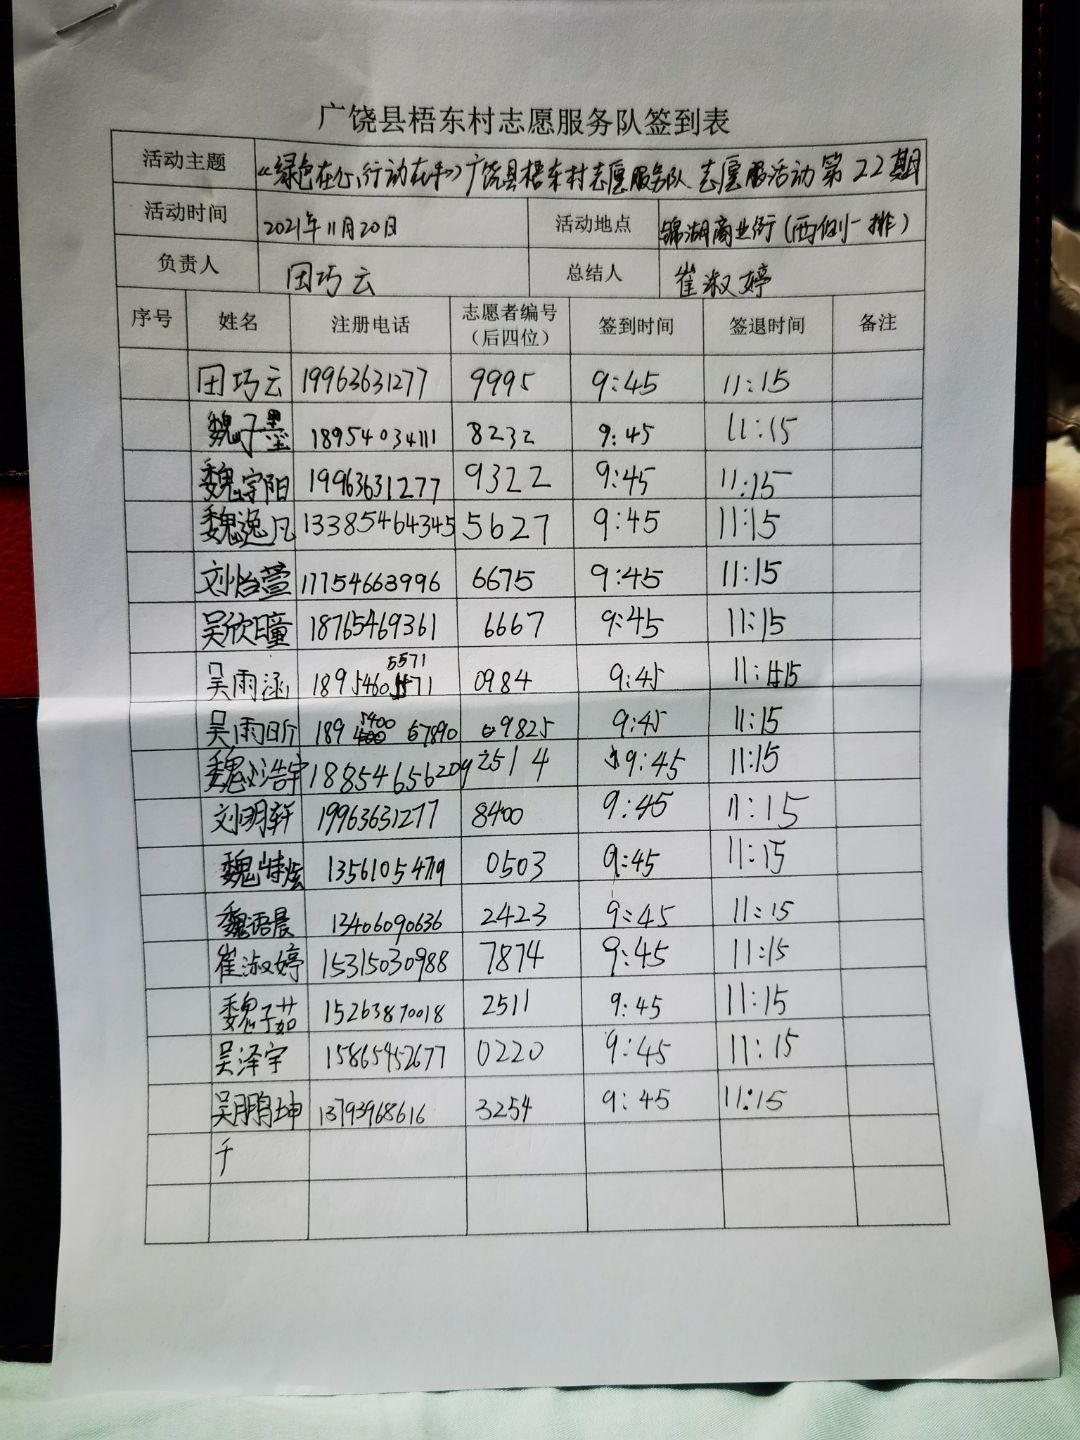 广饶县梧东村志愿服务队签到表
活动主题 《绿色在心,行动在手》广饶县梧东村志愿服务队 志愿服活动第22期
活动时间 2021年11月20日 活动地点 锦湖商业街(西侧一排)
负责人 田巧云 总结人 崔淑婷
序号 姓名 注册电话 志愿者编号(后四位) 签到时间 签退时间 备注
田巧云 19963631277 9995 9:45 11:15
魏子墨 18954034111 8232 9:45 11:15
魏宇阳 19963631277 9322 9:45 11:15
魏逸凡 13385464345 5627 9:45 11:15
刘怡萱 17754663996 6675 9:45 11:15
吴欣瞳 18765469361 6667 9:45 11:15
吴雨涵 18954605571 0984 9:45 11:15
吴雨昕 189 5400 67890 9825 9:45 11:15
魏刘浩宇 18854656209 2514 9:45 11:15
刘明轩 19963631277 8400 9:45 11:15
魏 13561054719 0503 9:45 11:15
魏语晨 13406090636 2423 9:45 11:15
崔淑婷 15315030988 7874 9:45 11:15
魏子茹 15263870018 2511 9:45 11:15
吴泽宇 15865452677 0220 9:45 11:15
吴鹏坤 13793968616 3254 9:45 11:15
于